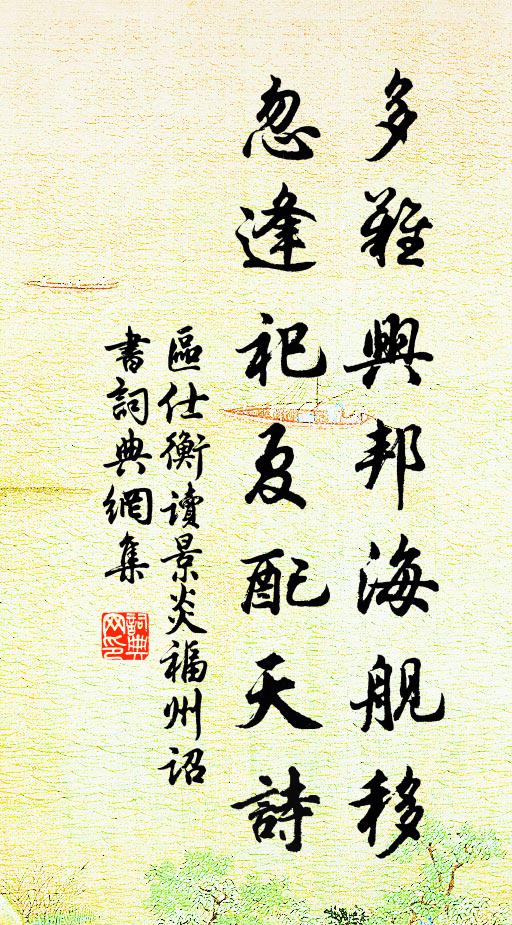 多難興邦海舰移
忽逢祀夏配天詩
區仕衡讀景炎福州詔
書詞典網集
詞典
网印